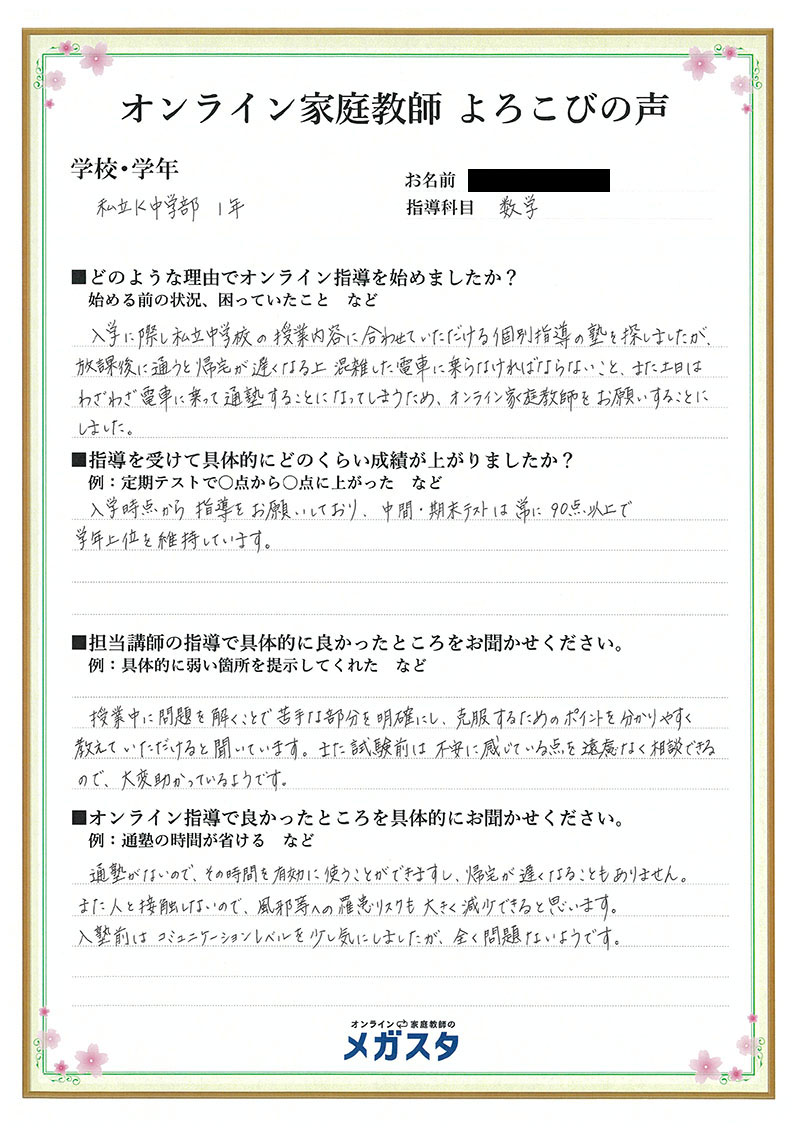 オンライン家庭教師 よろこびの声
学校・学年
お名前
私立K中学部 1年
指導科目 数学
■どのような理由でオンライン指導を始めましたか？
始める前の状況、困っていたこと など
入学に際し私立中学校の授業内容に合わせていただける個別指導の塾を探しましたが、
放課後に通うと帰宅が遅くなる上 混雑した電車に乗らなければならないこと、また土日は
わざわざ電車に乗って通塾することになってしまうため、オンライン家庭教師をお願いすることに
しました。
■指導を受けて具体的にどのくらい成績が上がりましたか？
例：定期テストで〇点から〇点に上がった など
入学時点から 指導をお願いしており、中間・期末テストは常に90点以上で
学年上位を維持しています。
■担当講師の指導で具体的に良かったところをお聞かせください。
例：具体的に弱い箇所を提示してくれた など
授業中に問題を解くことで苦手な部分を明確にし、克服するためのポイントを分かりやすく
教えていただけると聞いています。また試験前は不安に感じている点を遠慮なく相談できる
ので、大変助かっているようです。
■オンライン指導で良かったところを具体的にお聞かせください。
例：通塾の時間が省ける など
通塾がないので、その時間を有効に使うことができますし、帰宅が遅くなることもありません。
また人と接触しないので、風邪等への罹患リスクも大きく減少できると思います。
入塾前はコミュニケーションレベルを少し気にしましたが、全く問題ないようです。
オンライン家庭教師の
メガスタ